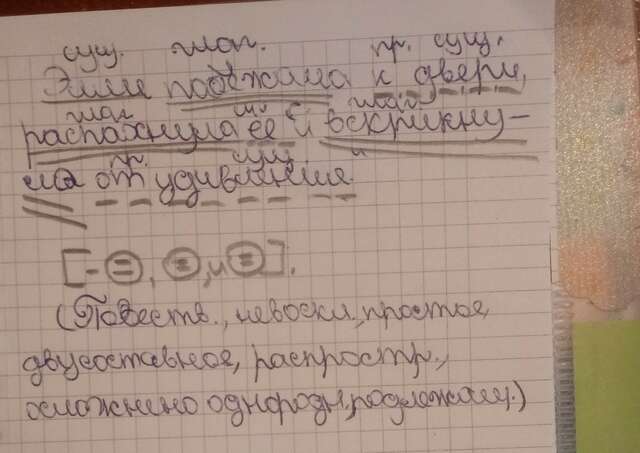 сущ. глаг. пр. сущ.
Элли подбежала к двери,
глаг. м. с глаг.
распахнула её и вскрикну-
пр. сущ.
ла от удивления.
[- =, =, и =].
(Повеств., невоскл., простое,
двусоставное, распростр.,
осложнено однородн. подлежащ.)